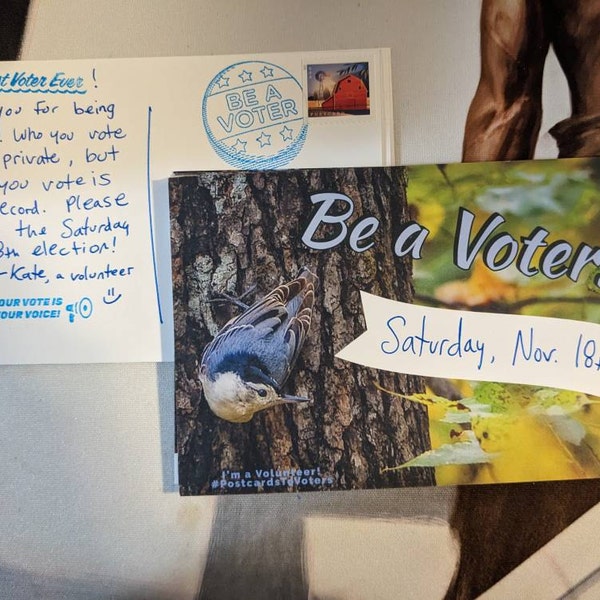 Voter Ever!
you for being
. Who you vote
private, but
you vote is
record. Please
the Saturday
8th election!
-Kate, a volunteer
OUR VOTE IS
OUR VOICE!
BE A
VOTER
Be a Voter
Saturday, Nov. 18
I'm a Volunteer!
#PostcardsToVoters